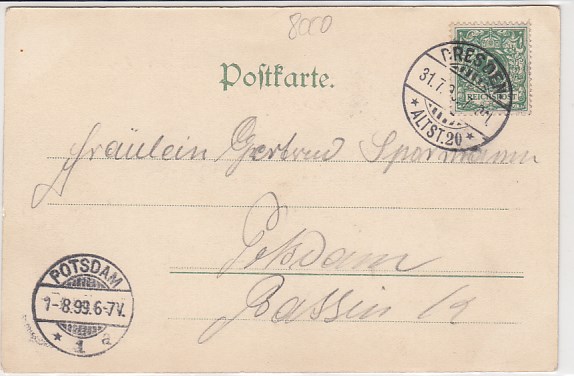 8000
Postkarte.
DRESDEN
31.7.
ALTST. 20
REICHSPOST
Fräulein Gertrud Sparmann
Potsdam
Bassin 12
POTSDAM
1-8.99.6-7V.
1 a